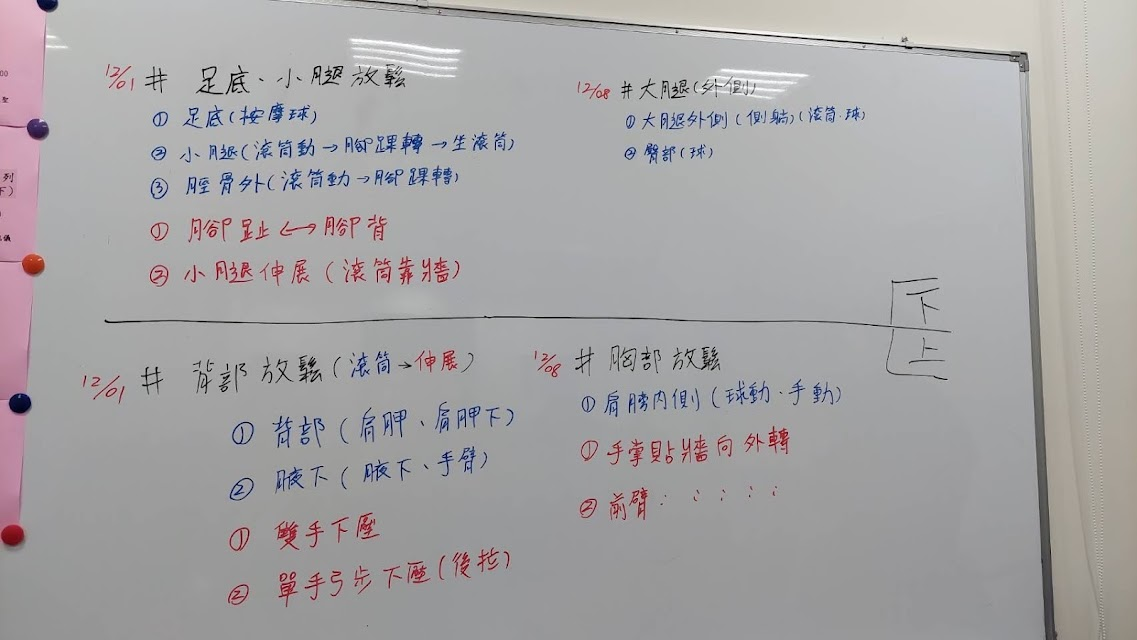 12/01 # 足底、小腿放鬆
① 足底(按摩球)
② 小腿(滾筒動→腳踝轉→坐滾筒)
③ 脛骨外(滾筒動→腳踝轉)
① 腳趾 ↔ 腳背
② 小腿伸展(滾筒靠牆)
12/08 # 大腿(外側)
① 大腿外側(側躺)(滾筒、球)
② 臀部(球)
下
上
12/01 # 背部放鬆(滾筒→伸展)
① 背部(肩胛、肩胛下)
② 腋下(腋下、手臂)
① 雙手下壓
② 單手弓步下壓(後拉)
12/08 # 胸部放鬆
① 肩膀內側(球動、手動)
① 手掌貼牆向外轉
② 前臂: : : : :